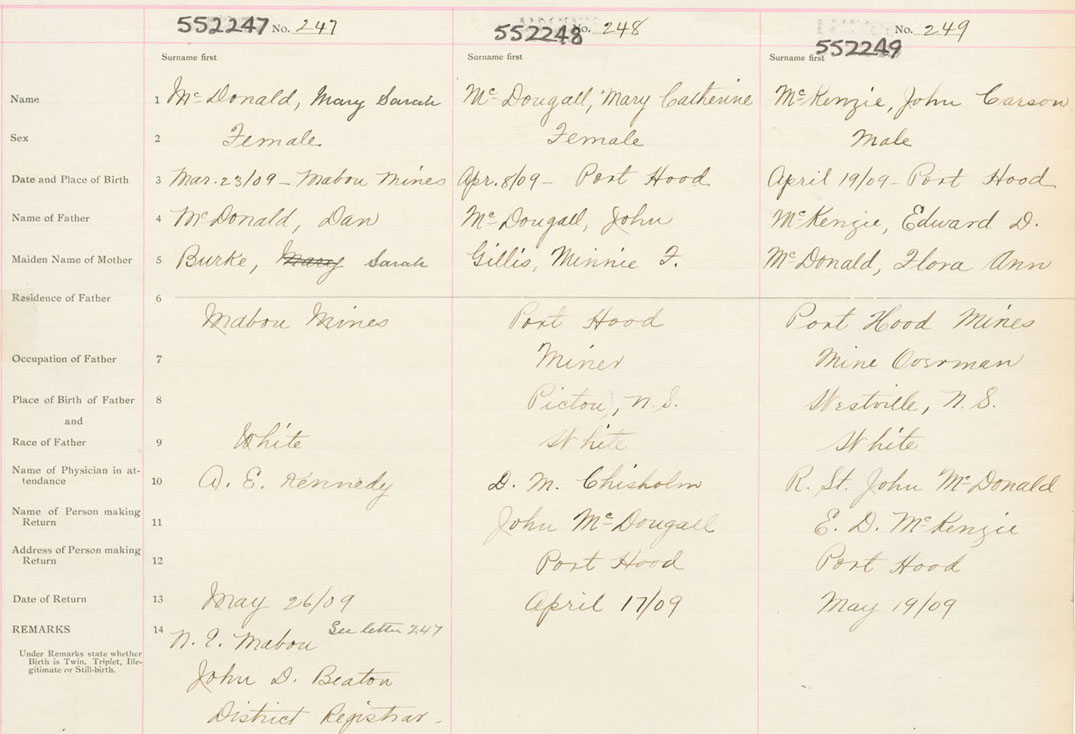 552247 No. 247 552248 No. 248 552249 No. 249
Surname first Surname first Surname first
Name 1 McDonald, Mary Sarah McDougall, Mary Catherine McKenzie, John Carson
Sex 2 Female Female Male
Date and Place of Birth 3 Mar. 23/09 - Mabou Mines Apr. 8/09 - Port Hood April 19/09 - Port Hood
Name of Father 4 McDonald, Dan McDougall, John McKenzie, Edward D.
Maiden Name of Mother 5 Burke, Mary Sarah Gillis, Minnie F. McDonald, Flora Ann
Residence of Father 6 Mabou Mines Port Hood Port Hood Mines
Occupation of Father 7 Miner Mine Overman
Place of Birth of Father 8 Pictou, N.S. Westville, N.S.
and
Race of Father 9 White White White
Name of Physician in at-
tendance 10 A. E. Kennedy D. M. Chisholm R. St. John McDonald
Name of Person making
Return 11 John McDougall E. D. McKenzie
Address of Person making
Return 12 Port Hood Port Hood
Date of Return 13 May 26/09 April 17/09 May 19/09
REMARKS 14 N. E. Mabou See letter 247
Under Remarks state whether
Birth is Twin, Triplet, Ille-
gitimate or Still-birth.
John D. Beaton
District Registrar -